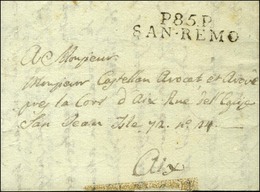 P.85.P.
SAN-REMO
A Monsieur
Monsieur Castellan Avocat et Avoué
près la Cour d'Aix Rue
San Jean Isle 72. N.° 14
Aix